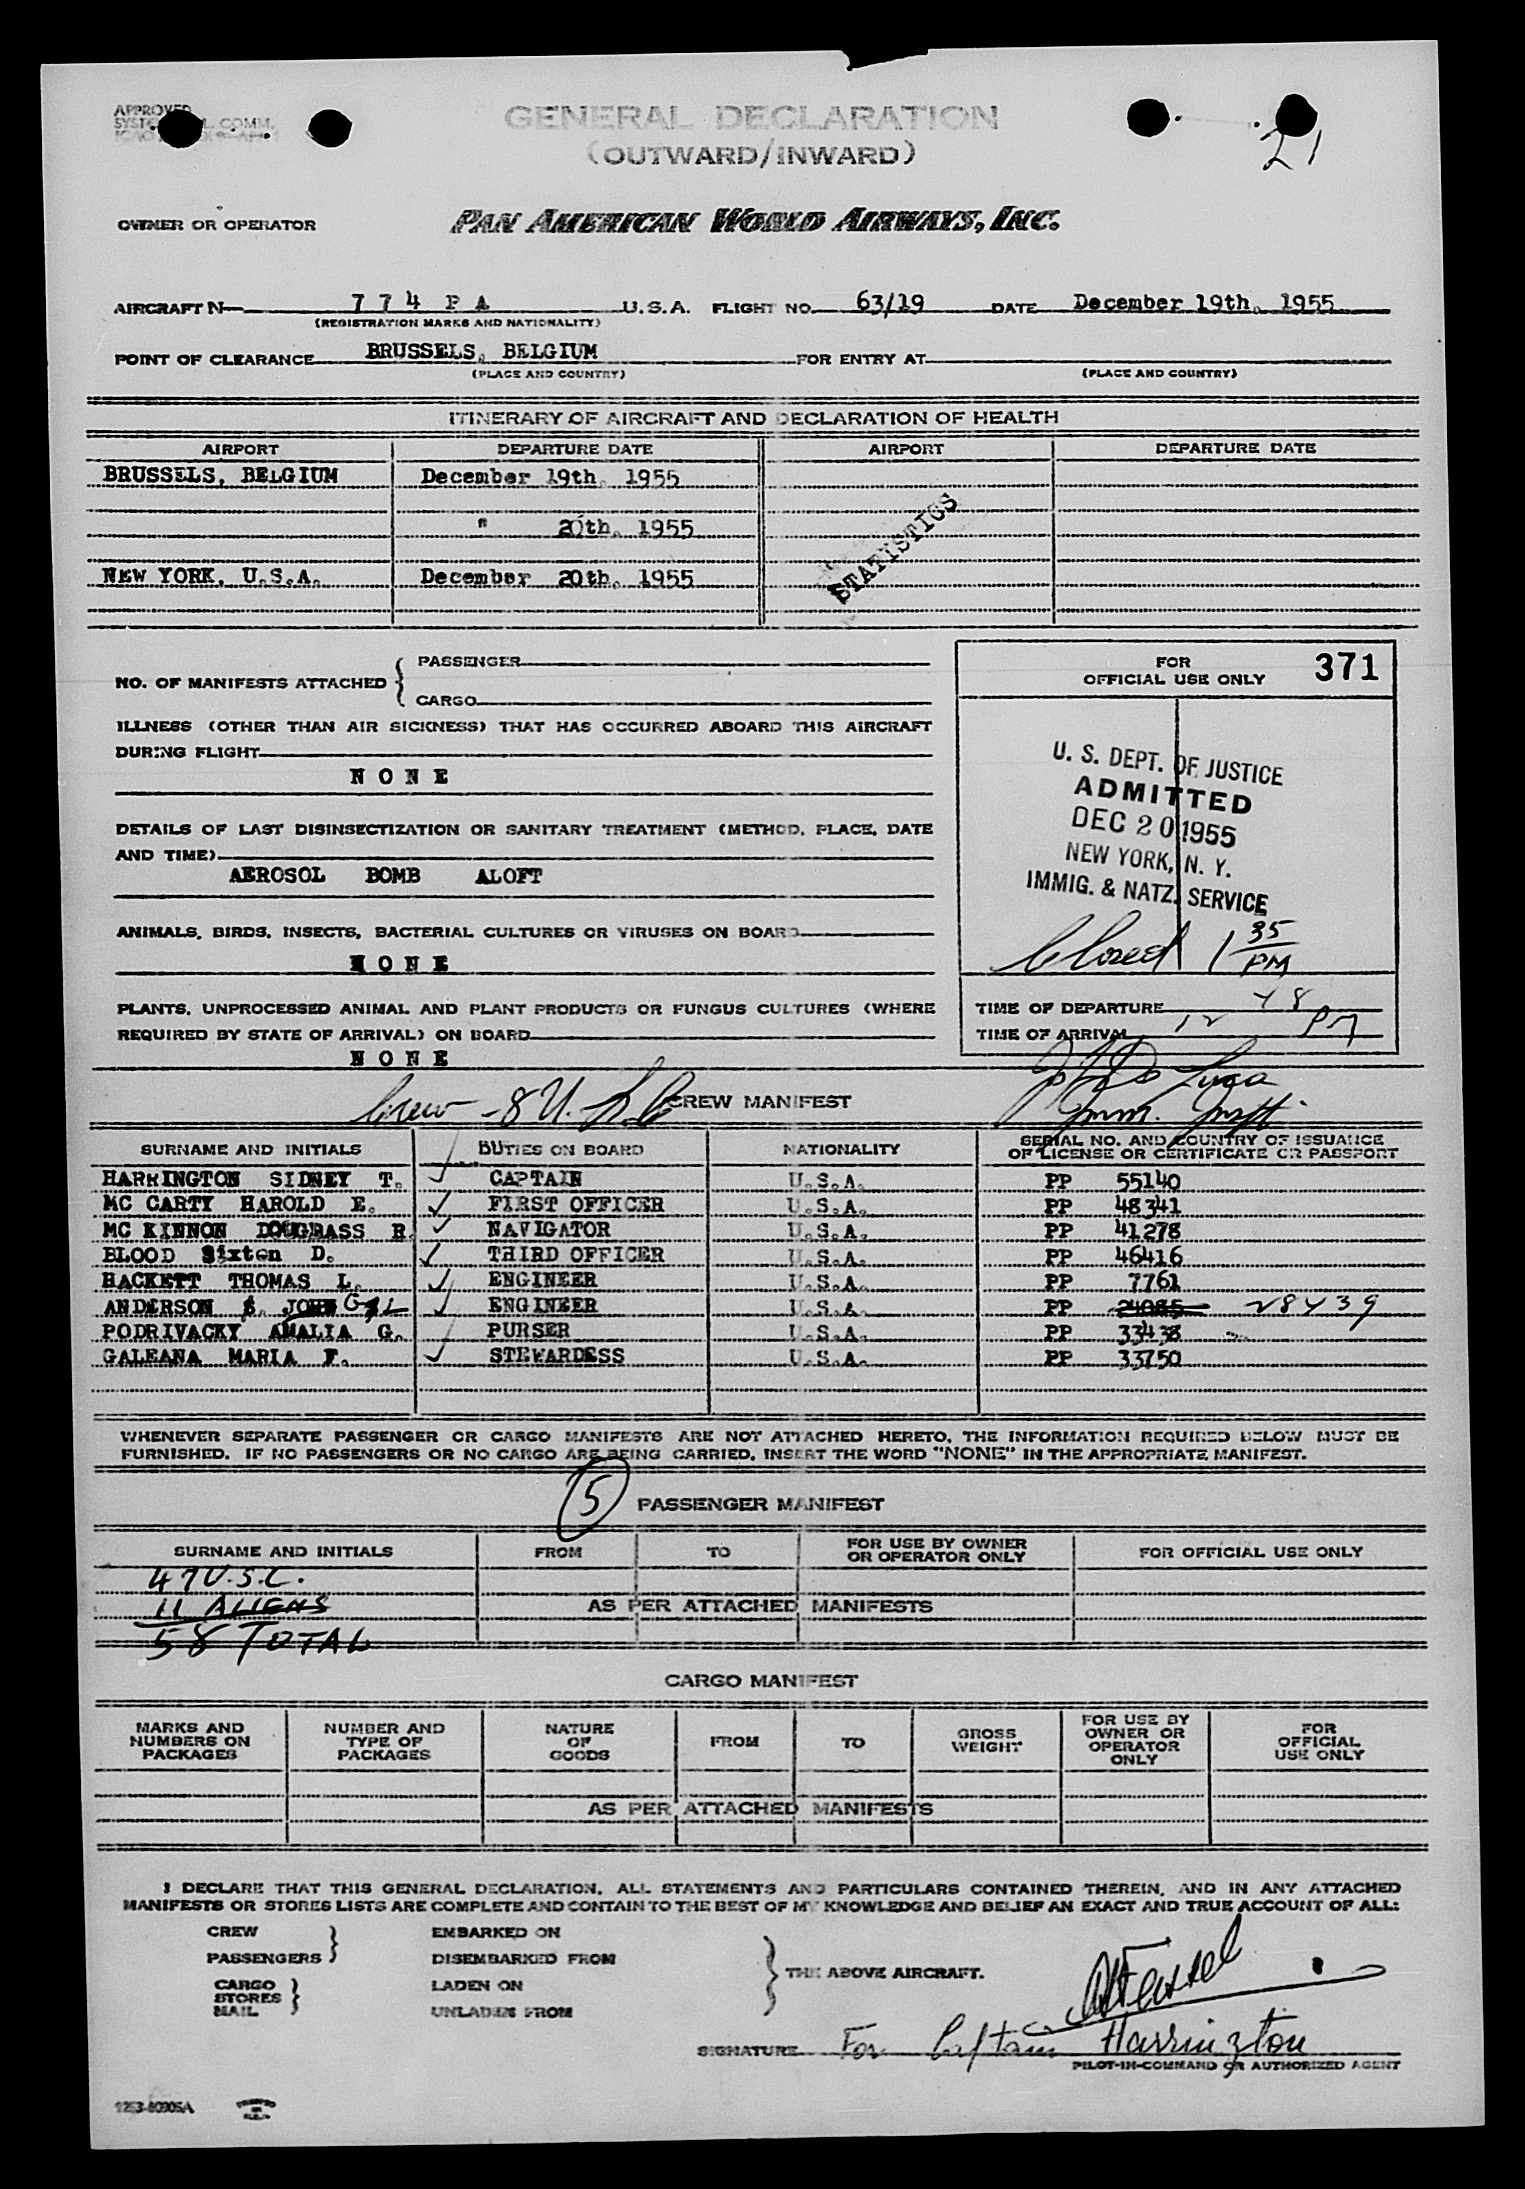 APPROVED
GENERAL DECLARATION
(OUTWARD/INWARD)
21
OWNER OR OPERATOR PAN AMERICAN WORLD AIRWAYS, INC.
AIRCRAFT N— 7 7 4 P A U.S.A. FLIGHT NO. 63/19 DATE December 19th, 1955
(REGISTRATION MARKS AND NATIONALITY)
POINT OF CLEARANCE BRUSSELS, BELGIUM FOR ENTRY AT
(PLACE AND COUNTRY) (PLACE AND COUNTRY)
ITINERARY OF AIRCRAFT AND DECLARATION OF HEALTH
AIRPORT DEPARTURE DATE AIRPORT DEPARTURE DATE
BRUSSELS, BELGIUM December 19th, 1955
" 20th, 1955
STATISTICS
NEW YORK, U.S.A. December 20th, 1955
NO. OF MANIFESTS ATTACHED { PASSENGER
CARGO
FOR OFFICIAL USE ONLY 371
ILLNESS (OTHER THAN AIR SICKNESS) THAT HAS OCCURRED ABOARD THIS AIRCRAFT
DURING FLIGHT
N O N E
DETAILS OF LAST DISINSECTIZATION OR SANITARY TREATMENT (METHOD, PLACE, DATE
AND TIME)
AEROSOL BOMB ALOFT
ANIMALS, BIRDS, INSECTS, BACTERIAL CULTURES OR VIRUSES ON BOARD
N O N E
PLANTS, UNPROCESSED ANIMAL AND PLANT PRODUCTS OR FUNGUS CULTURES (WHERE
REQUIRED BY STATE OF ARRIVAL) ON BOARD
N O N E
U. S. DEPT. OF JUSTICE
ADMITTED
DEC 20 1955
NEW YORK, N. Y.
IMMIG. & NATZ. SERVICE
Closed 1 35 PM
TIME OF DEPARTURE
TIME OF ARRIVAL 12 48 PM
Crew - 8 U.S.C. CREW MANIFEST
Imm. Inspt.
SURNAME AND INITIALS DUTIES ON BOARD NATIONALITY SERIAL NO. AND COUNTRY OF ISSUANCE
OF LICENSE OR CERTIFICATE OR PASSPORT
HARRINGTON SIDNEY T. CAPTAIN U.S.A. PP 55140
MC CARTY HAROLD E. FIRST OFFICER U.S.A. PP 48341
MC KINNON DOUGLASS R. NAVIGATOR U.S.A. PP 41278
BLOOD Sixten D. THIRD OFFICER U.S.A. PP 46416
HACKETT THOMAS L. ENGINEER U.S.A. PP 7761
ANDERSON JOHN ENGINEER U.S.A. PP 24085 28439
PODRIVACKY AMALIA G. PURSER U.S.A. PP 33438
GALEANA MARIA F. STEWARDESS U.S.A. PP 33750
WHENEVER SEPARATE PASSENGER OR CARGO MANIFESTS ARE NOT ATTACHED HERETO, THE INFORMATION REQUIRED BELOW MUST BE
FURNISHED. IF NO PASSENGERS OR NO CARGO ARE BEING CARRIED, INSERT THE WORD "NONE" IN THE APPROPRIATE MANIFEST.
5 PASSENGER MANIFEST
SURNAME AND INITIALS FROM TO FOR USE BY OWNER OR OPERATOR ONLY FOR OFFICIAL USE ONLY
47 U.S.C.
11 ALIENS AS PER ATTACHED MANIFESTS
58 TOTAL
CARGO MANIFEST
MARKS AND NUMBERS ON PACKAGES NUMBER AND TYPE OF PACKAGES NATURE OF GOODS FROM TO GROSS WEIGHT FOR USE BY OWNER OR OPERATOR ONLY FOR OFFICIAL USE ONLY
AS PER ATTACHED MANIFESTS
I DECLARE THAT THIS GENERAL DECLARATION, ALL STATEMENTS AND PARTICULARS CONTAINED THEREIN, AND IN ANY ATTACHED
MANIFESTS OR STORES LISTS ARE COMPLETE AND CONTAIN TO THE BEST OF MY KNOWLEDGE AND BELIEF AN EXACT AND TRUE ACCOUNT OF ALL:
CREW EMBARKED ON
PASSENGERS DISEMBARKED FROM
THE ABOVE AIRCRAFT.
CARGO LADEN ON
STORES
MAIL UNLADEN FROM
SIGNATURE For Captain Harrington
PILOT-IN-COMMAND OR AUTHORIZED AGENT
1253-60905A